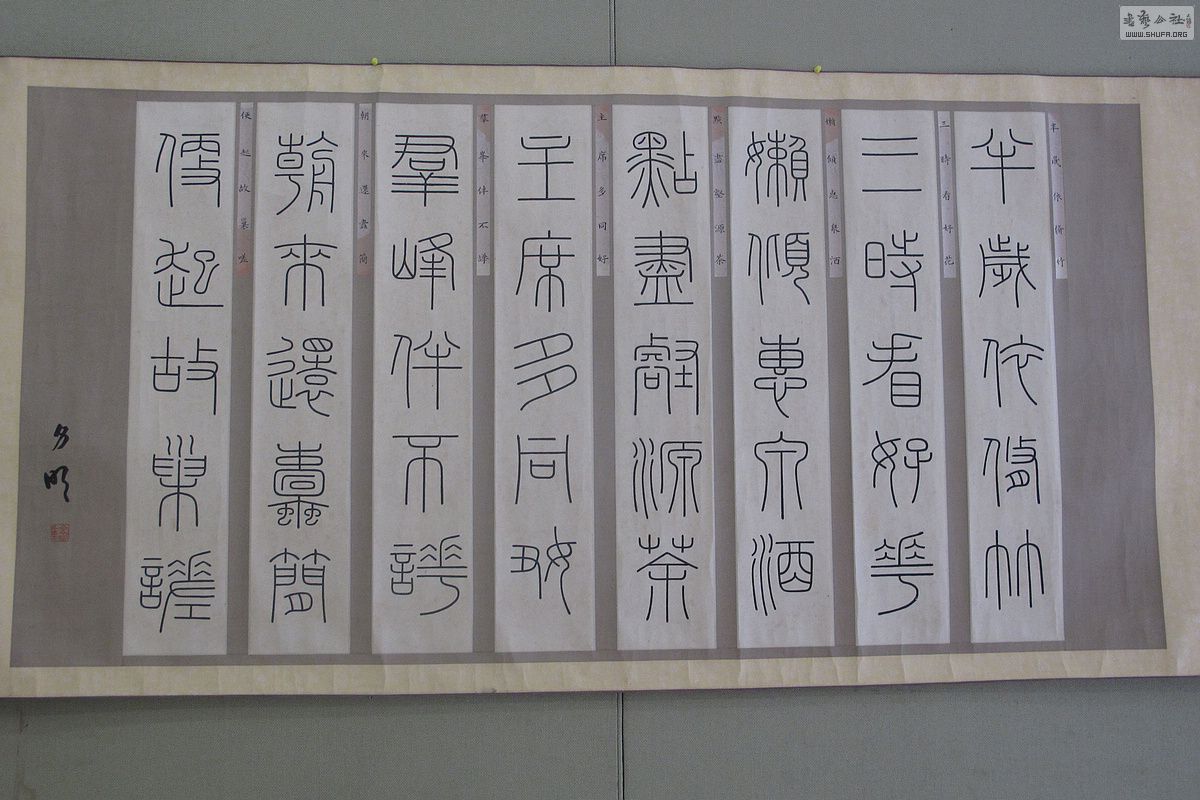 半歲依脩竹
半歲依脩竹
三時看好花
三時看好華
懶傾惠泉酒
嬾傾惠泉酒
點盡壑源茶
點盡壑源茶
主席多同好
主席多同好
羣峯伴不譁
羣峰伴不譁
朝來還蠹簡
朝來還蠹簡
便起故巢嗟
便起故巢謯
書藝公社
WWW.SHUFA.ORG